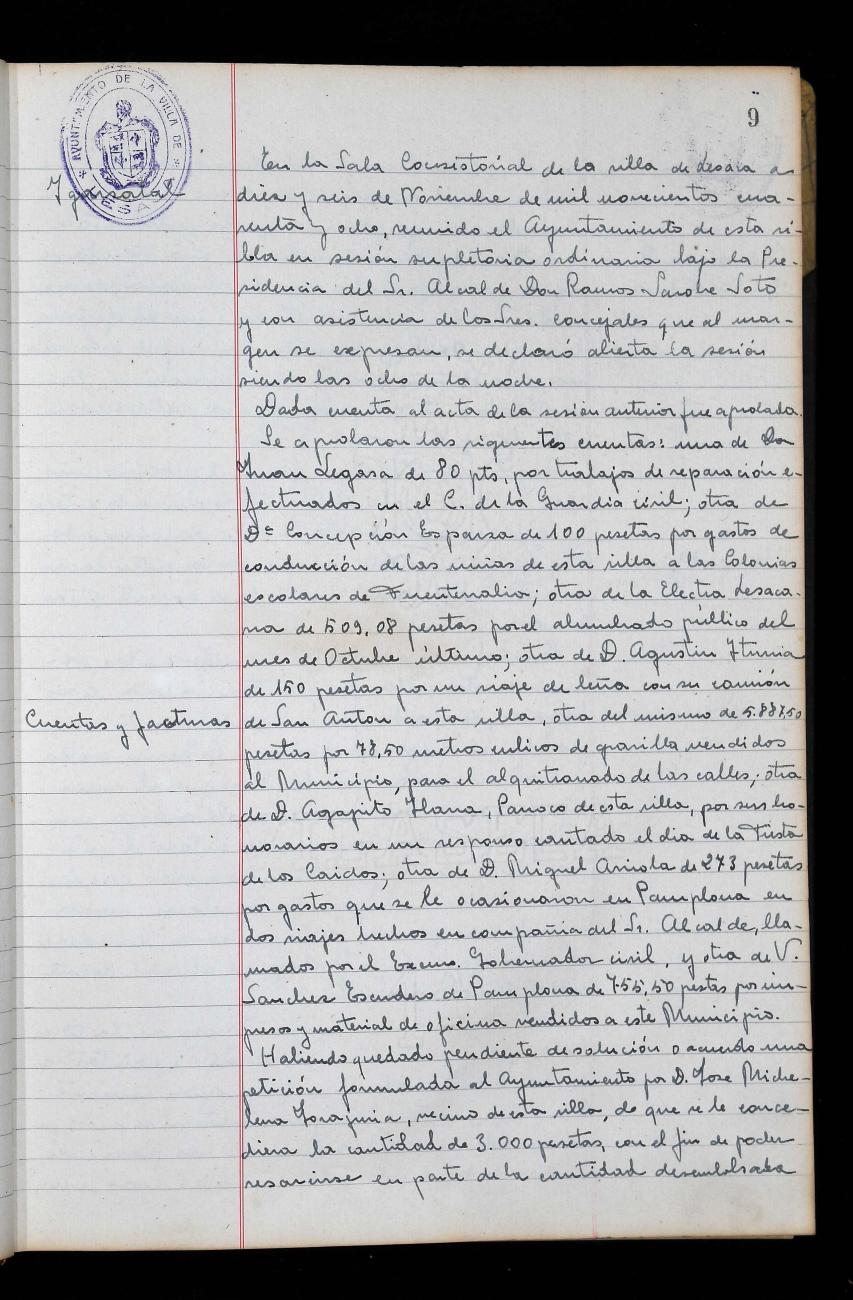 9
AYUNTAMIENTO DE LA VILLA DE
LESACA
Igarzabal
En la Sala Consistorial de la villa de Lesaca a
diez y seis de Noviembre de mil novecientos cua-
renta y ocho, reunido el Ayuntamiento de esta vi-
lla en sesión supletoria ordinaria bajo la Pre-
sidencia del Sr. Alcalde Don Ramos Soto
y con asistencia de los Sres. concejales que al mar-
gen se expresan, se declaró abierta la sesión
siendo las ocho de la noche.
Dada cuenta al acta de la sesión anterior fue aprobada.
Se aprobaron las siguientes cuentas: una de Don
Juan Legasa de 80 pts, por trabajos de reparación e-
fectuados en el C. de la Guardia civil; otra de
Dª Concepción Esparza de 100 pesetas por gastos de
conducción de las niñas de esta villa a las Colonias
escolares de Fuenterrabia; otra de la Electra Lesaca-
na de 509,08 pesetas por el alumbrado público del
mes de Octubre último; otra de D. Agustin Iturria
de 150 pesetas por un viaje de leña con su camión
Cuentas y facturas
de San Anton a esta villa, otra del mismo de 5.887,50
pesetas por 78,50 metros cubicos de gravilla vendidos
al Municipio, para el alquitranado de las calles; otra
de D. Agapito Parroco de esta villa, por sus ho-
norarios en un responso cantado el dia de la Fiesta
de los Caidos; otra de D. Miguel Arriola de 273 pesetas
por gastos que se le ocasionaron en Pamplona en
dos viajes hechos en compañia del Sr. Alcalde, lla-
mados por el Excmo. Gobernador civil, y otra de V.
Sanchez Escudero de Pamplona de 755,50 pestas por im-
presos y material de oficina vendidos a este Municipio.
Habiendo quedado pendiente de solución o acuerdo una
petición formulada al Ayuntamiento por D. Jose Miche-
lena vecino de esta villa, de que se le conce-
diera la cantidad de 3.000 pesetas, con el fin de poder
resarcirse en parte de la cantidad desembolsada